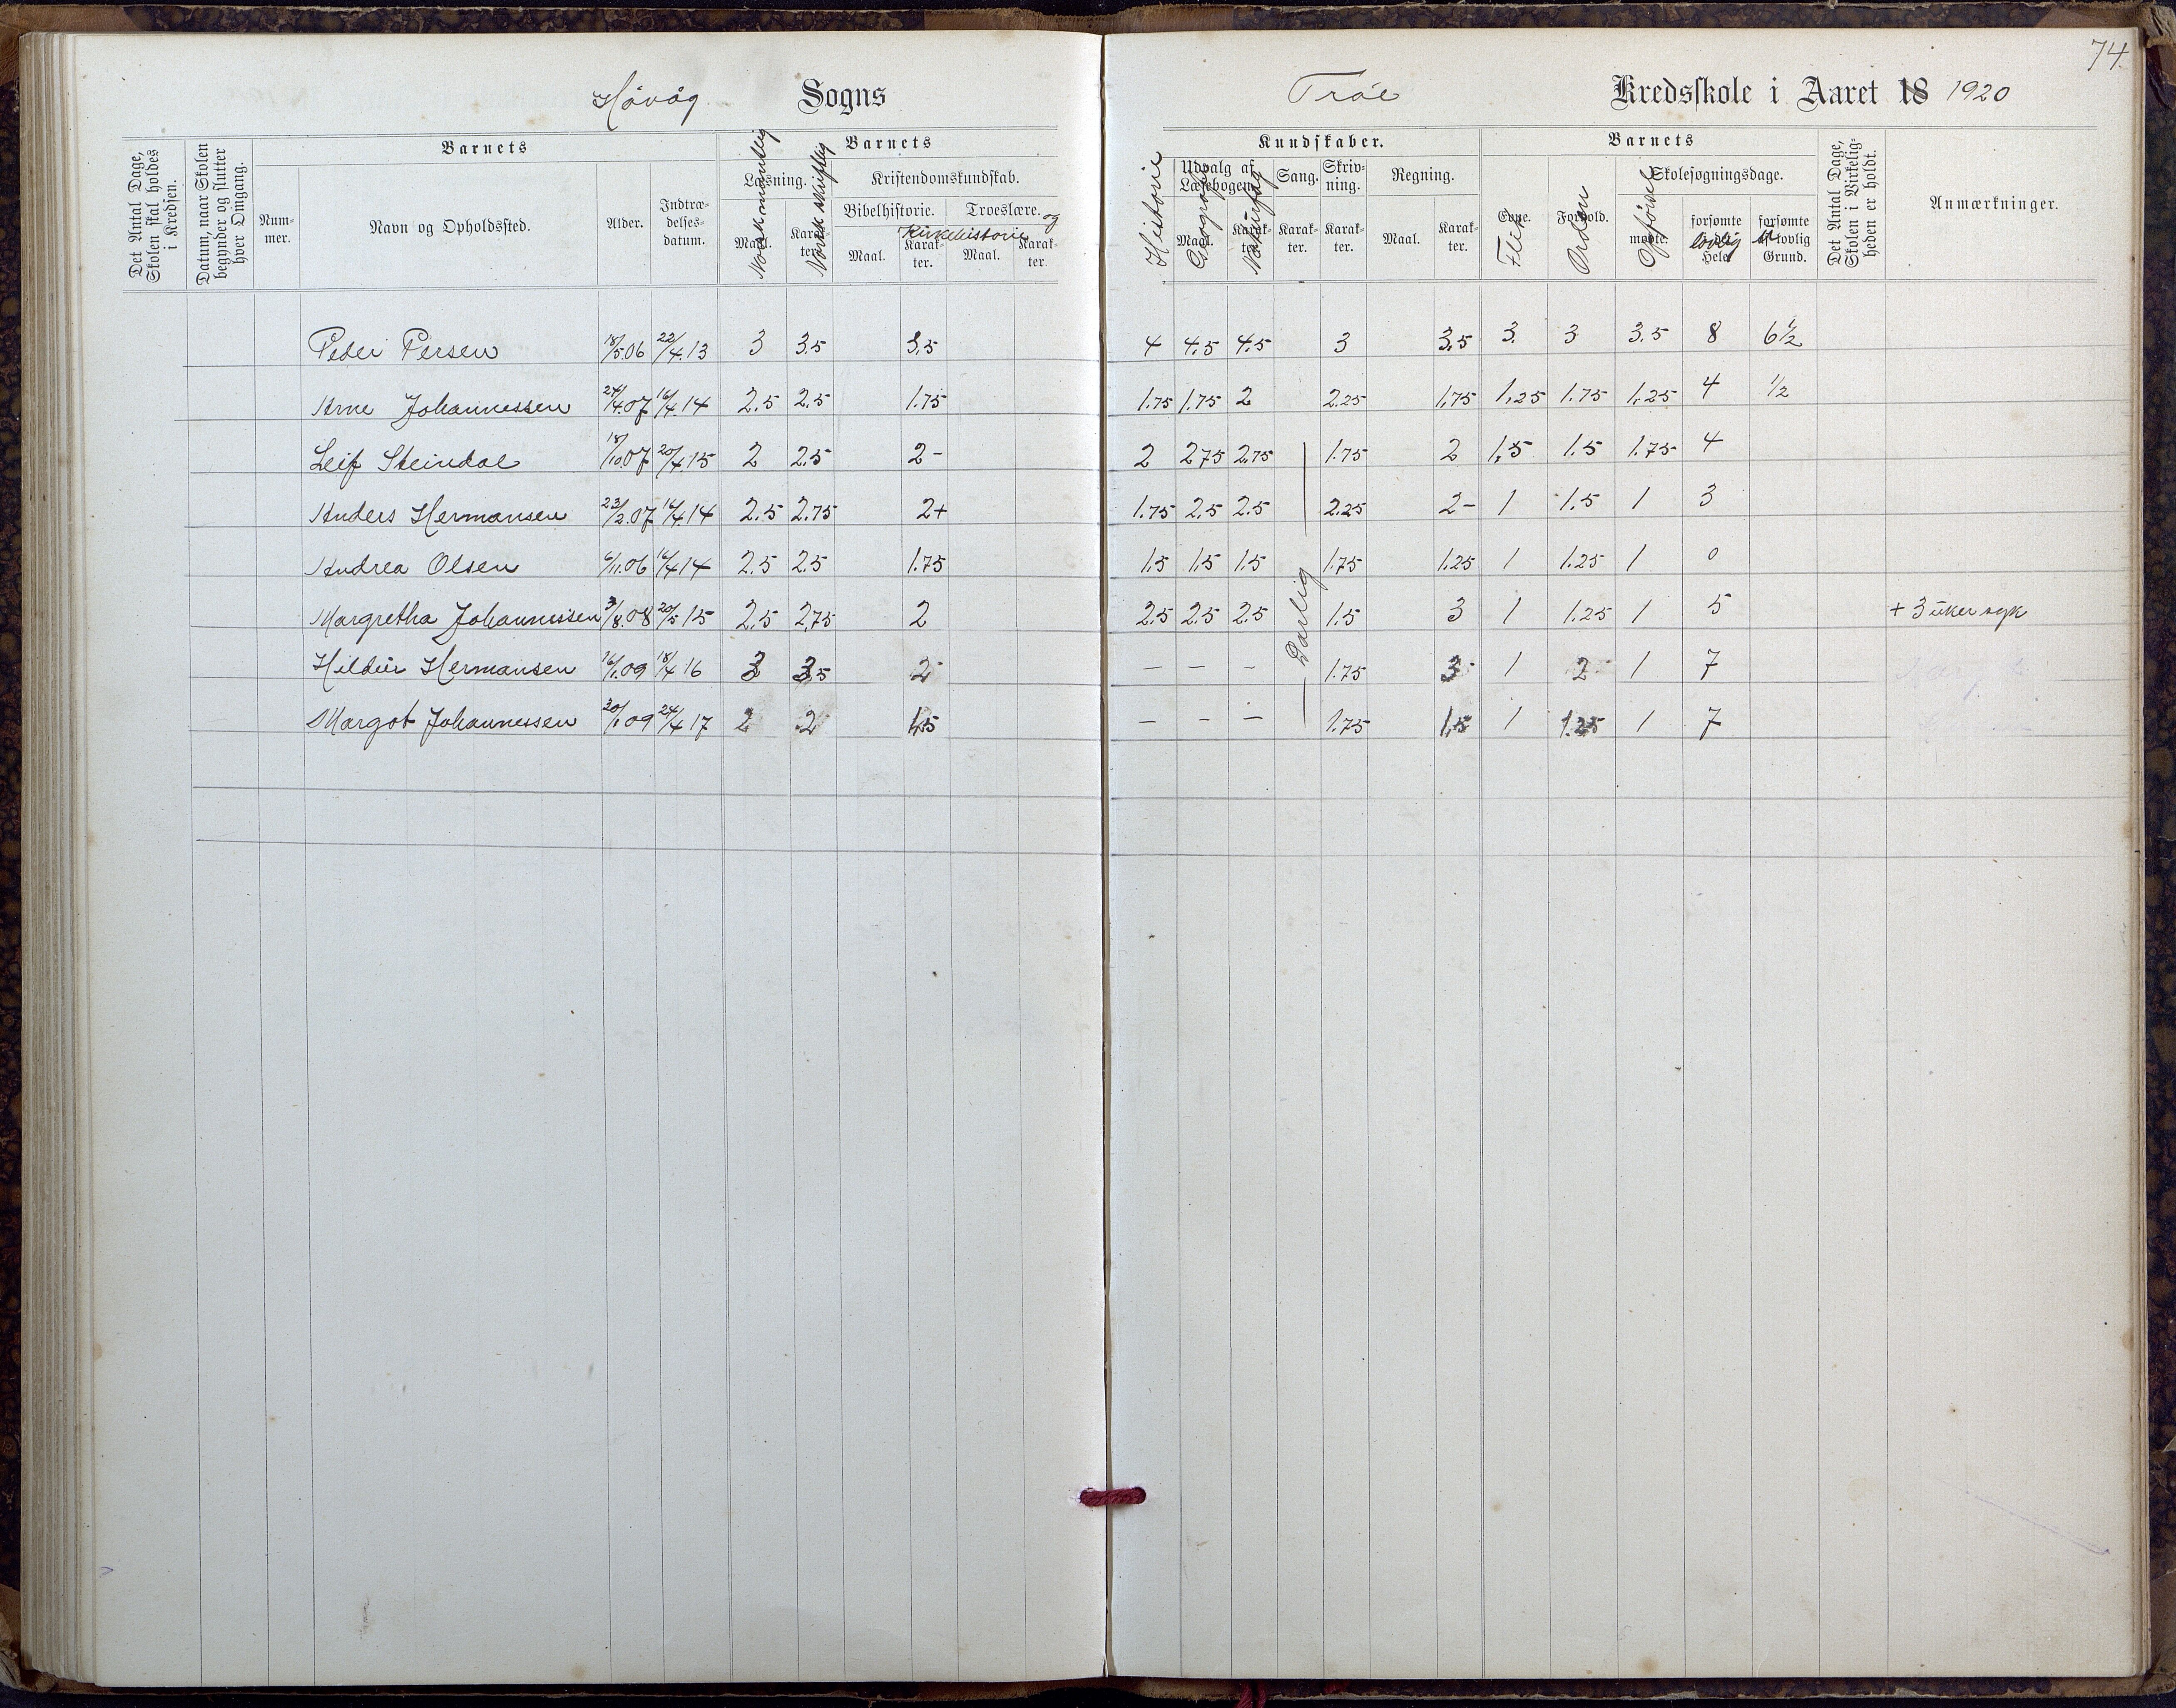 74.
Høvåg Sogns
Trøe Kredsskole i Aaret 18 1920
Det Antal Dage, Skolen skal holdes i Kredsen.
Datum, naar Skolen begynder og slutter hver Omgang.
Barnets
Num-
mer.
Navn og Opholdssted.
Alder.
Indtræ-
delses-
datum.
Barnets
Læsning. Kristendomskundskab.
Norsk mundtlig
Norsk skriftlig
Bibelhistorie. Troeslære. og
Kirkehistorie
Maal. Karak-
ter. Maal. Karak-
ter. Maal. Karak-
ter.
Kundskaber.
Historie
Udvalg af Læsebogen.
Geografi
Naturfag
Sang. Skriv-
ning. Regning.
Maal. Karak-
ter. Karak-
ter. Karak-
ter. Maal. Karak-
ter.
Barnets
Evne. Forhold. Skolesøgningsdage.
Flid Orden Opførsel
mødte. forsømte i det Hele. forsømte af lovlig Grund.
lovlig
Det Antal Dage, Skolen i Virkelig-
heden er holdt.
Anmærkninger.
Peder Persen 18/5.06 22/4.13 3 3.5 3,5 4 4.5 4.5 3 3,5 3. 3 3.5 8 6½
Arne Johannessen 24/4.07 16/4.14 2.5 2.5 1.75 1.75 1.75 2 2.25 1,75 1,25 1.75 1.25 4 ½
Leif Steindal 18/10.07 20/4.15 2 2.5 2- 2 2.75 2.75 1.75 2 1,5 1.5 1.75 4
Anders Hermansen 23/2.07 16/4.14 2.5 2.75 2+ 1.75 2.5 2.5 2.25 2- 1 1.5 1 3
Andrea Olsen 6/11.06 16/4.14 2.5 2.5 1.75 1.5 1.5 1.5 1.75 1.25 1 1.25 1 0
Margretha Johannessen 3/8.08 20/5.15 2.5 2.75 2 2.5 2.5 2.5 1.5 3 1 1.25 1 5 + 3 uker syk
Hildur Hermansen 16/1.09 18/4.16 3 3.5 2- - - - 1.75 3- 1 2- 1 7
Margot Johannessen 20/1.09 24/4.17 2 2 1,5 - - - 1.75 1,5 1 1.25 1 7
Dårlig